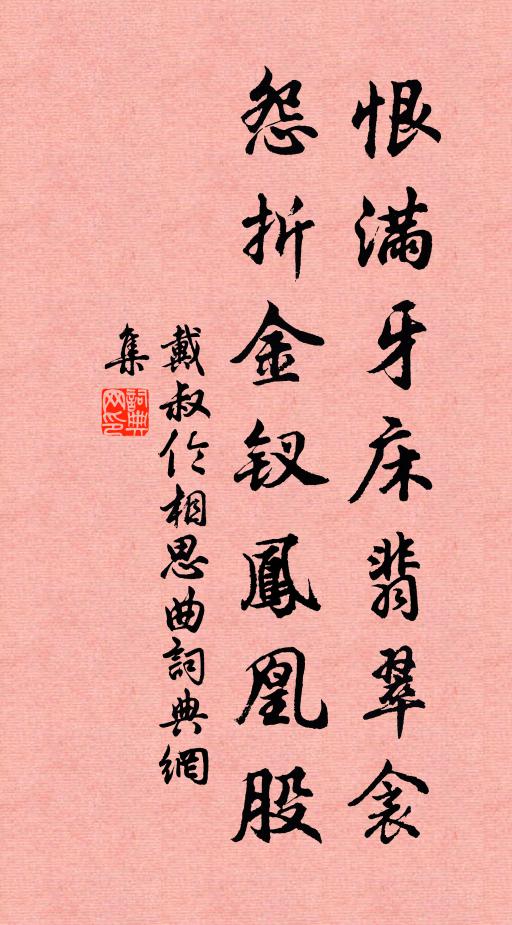 恨滿牙床翡翠衾
怨折金钗鳳凰股
戴叔伦相思曲詞典網
集
詞典
网印